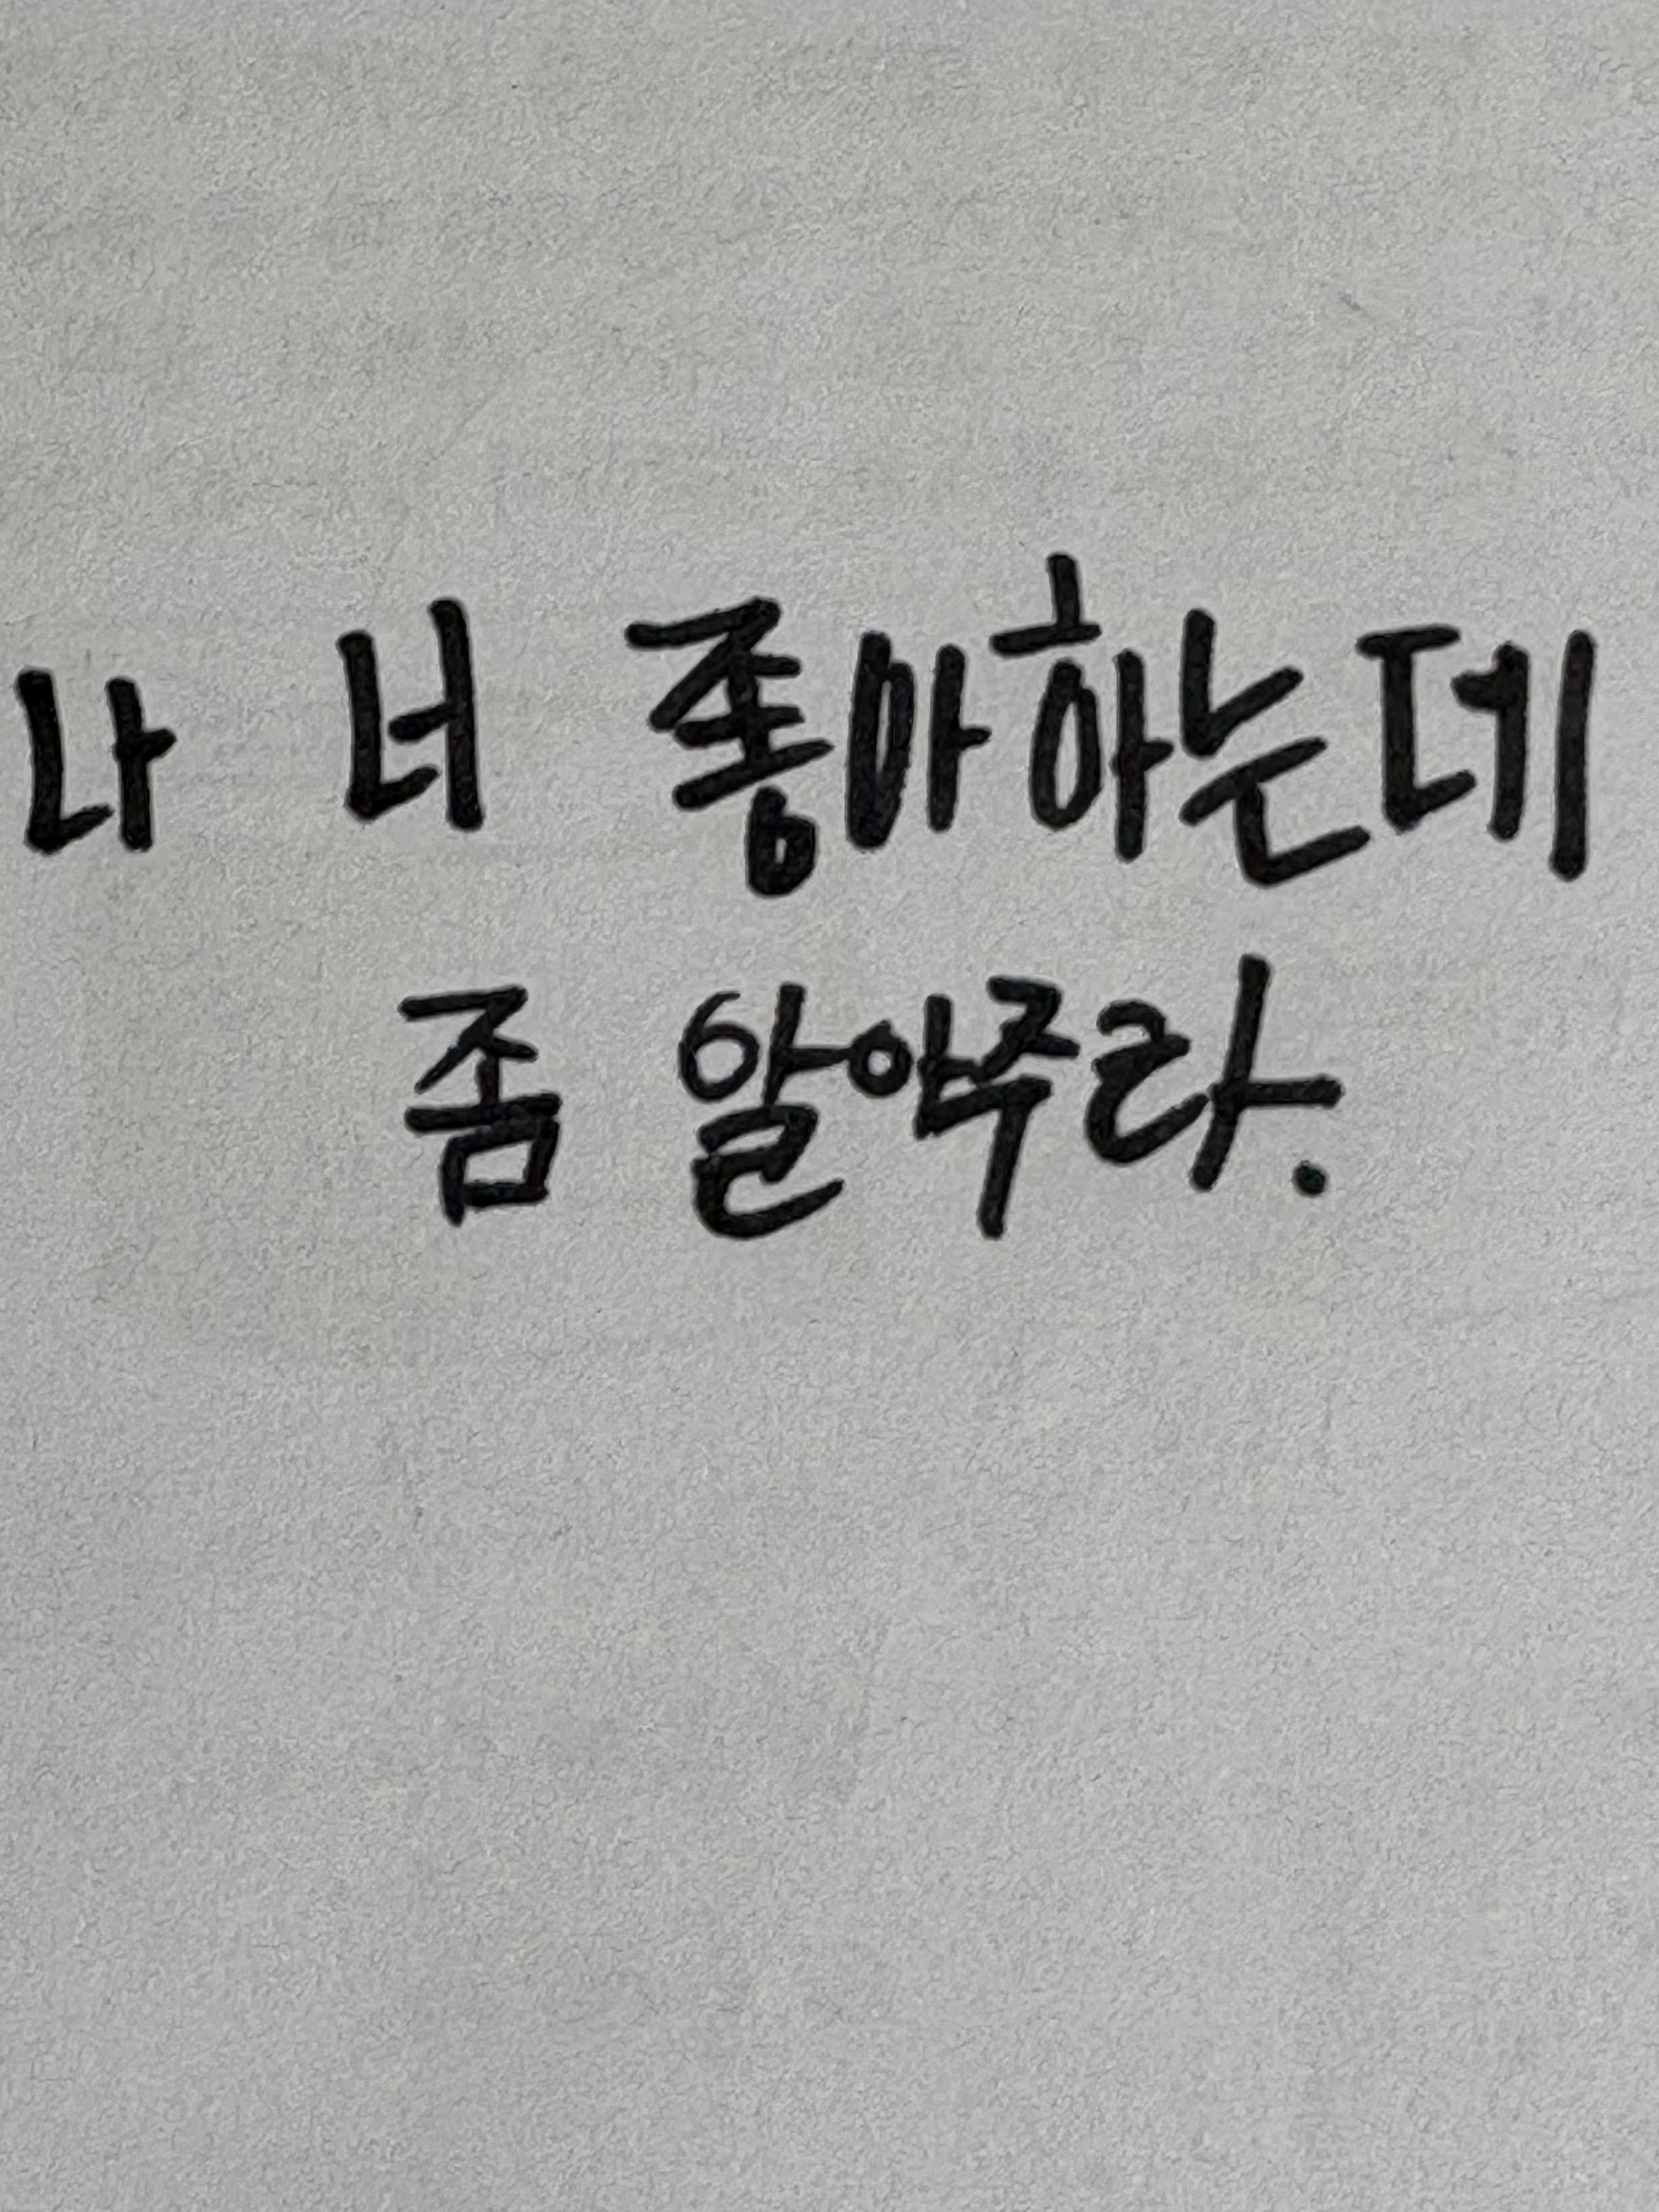 나 너 좋아하는데
좀 알아주라.